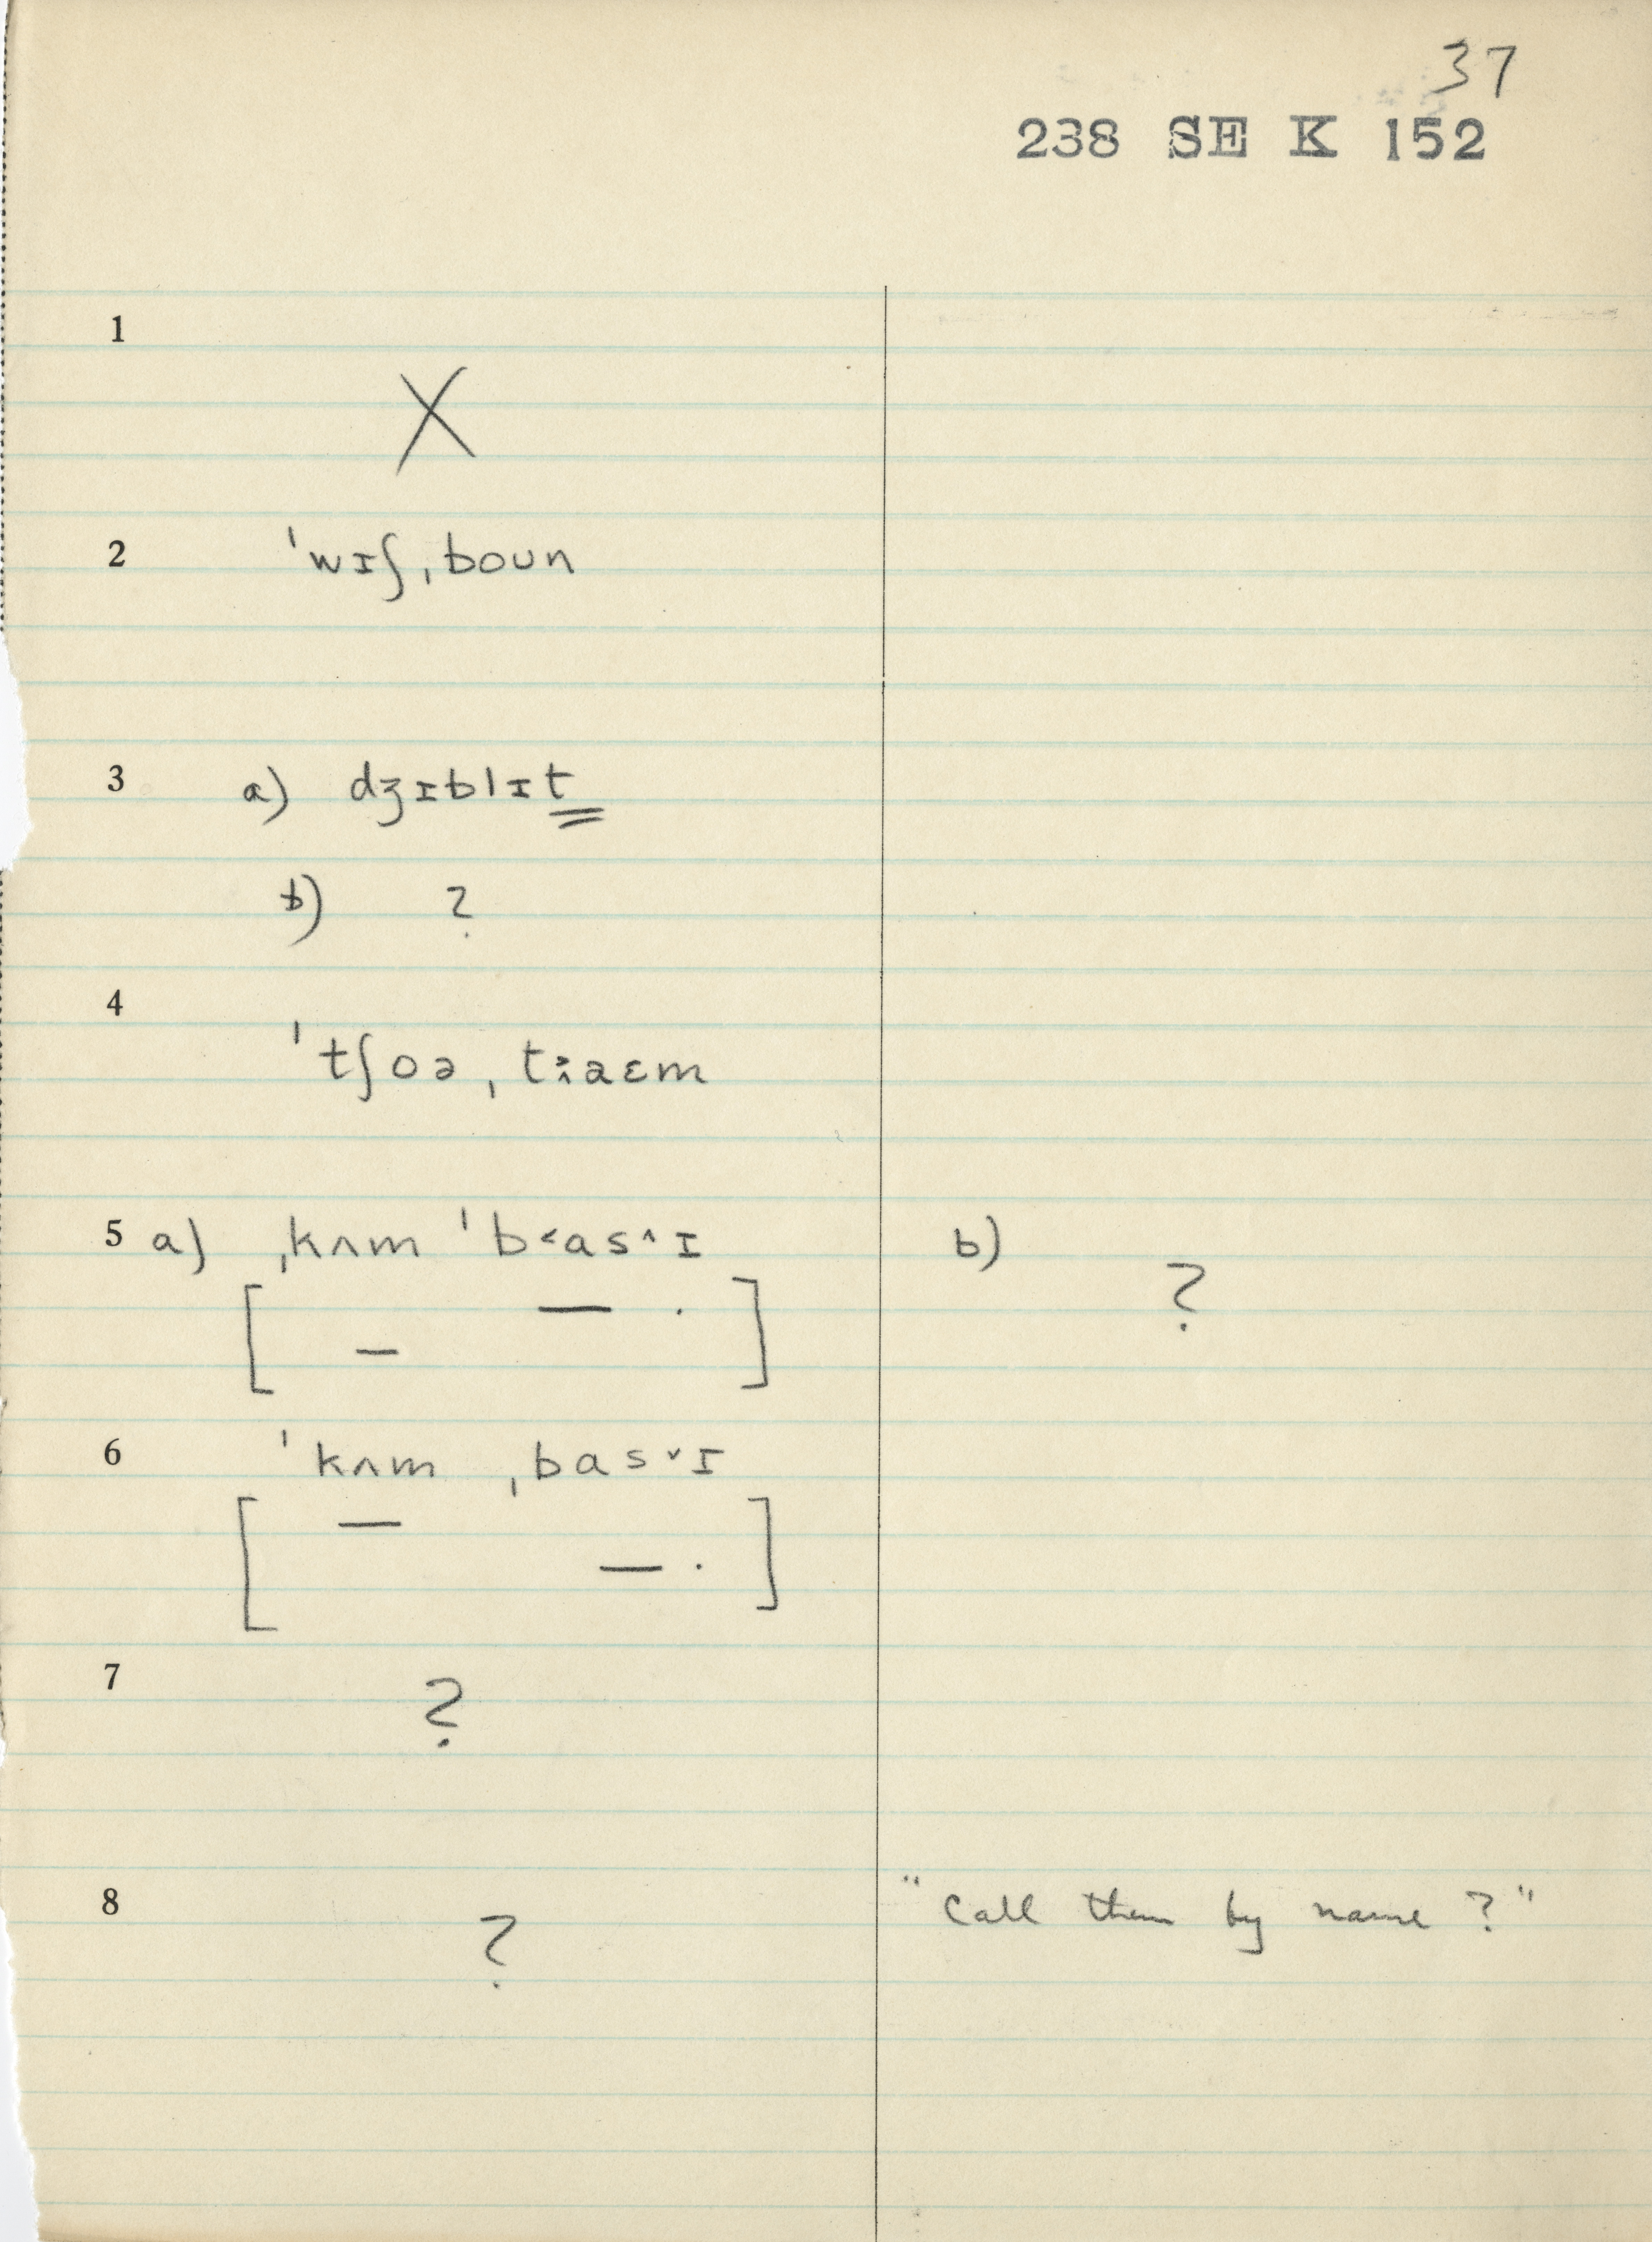 37
238 SE K 152
1 X
2 ˈwɪʃˌboun
3 a) dʒɪblɪt
b) ?
4 ˈtʃoəˌt˃˄aɛm
5 a) ˌkʌm ˈb˂as˄ɪ b) ?
6 ˈkʌm ˌbas˅ɪ
7 ?
8 ? "Call them by name?"